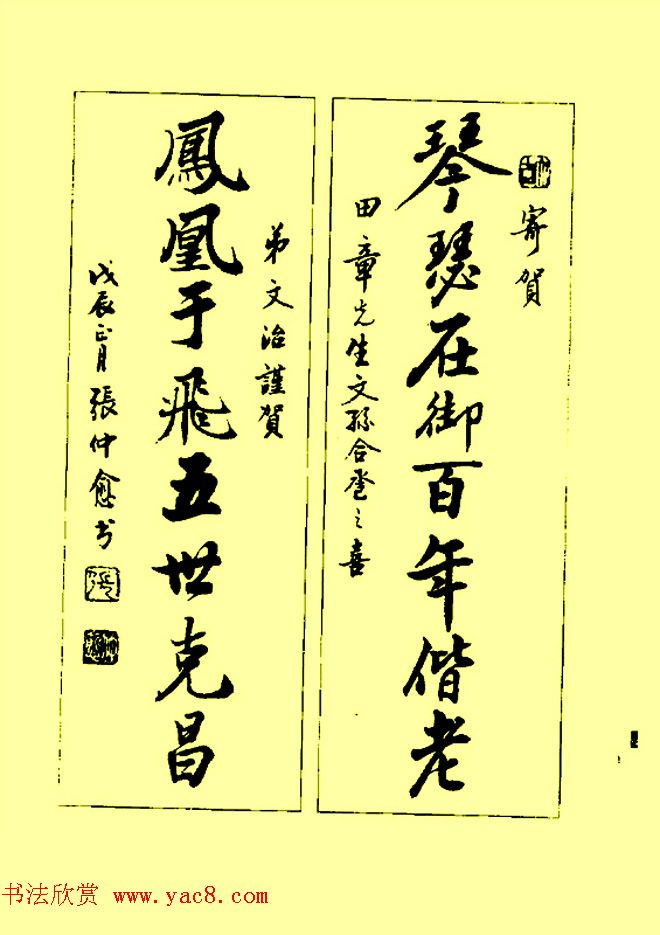 寄賀
琴瑟在御百年偕老
田章先生文孫合卺之喜
弟文治謹賀
鳳凰于飛五世克昌
戊辰正月張仲愈书
張
书法欣赏 www.yac8.com